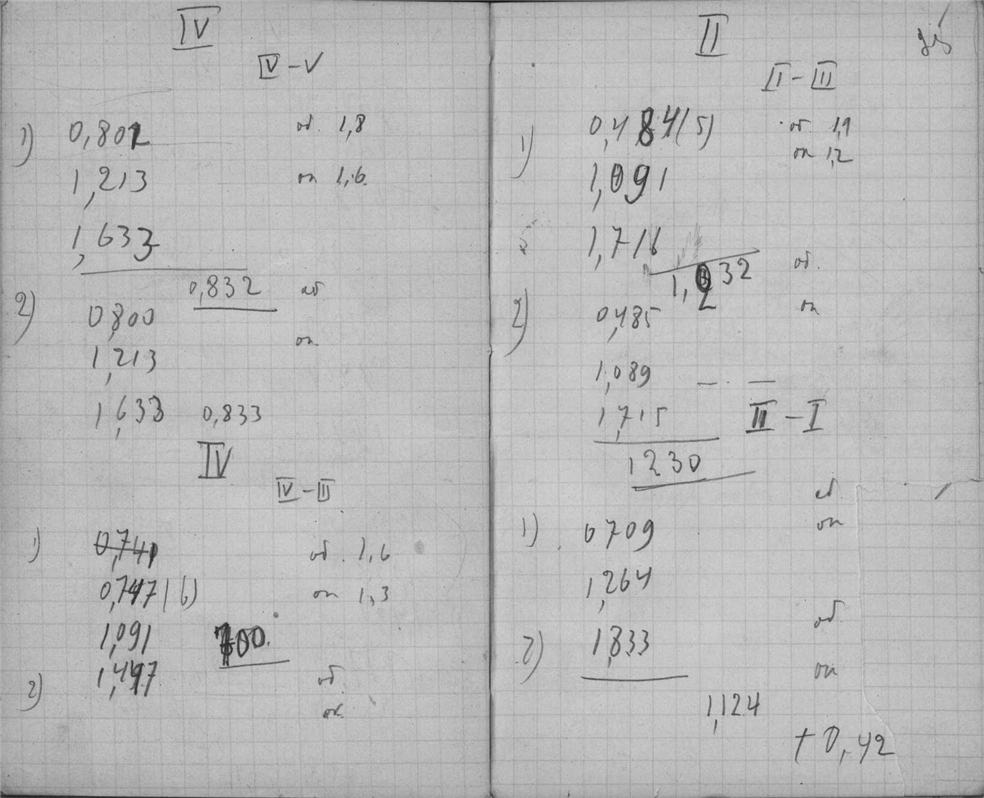 IV
IV - V
1) 0,801 об. 1,8
1,213 оп 1,6.
1,633
0,832 об
2) 0,800
оп
1,213
1,633 0,833
IV
IV - II
1) 0,741 об. 1,6
0,747(6) оп 1,3
1,091 700.
1,497 об.
2) оп.
II
II - III
1) 0,484(5) об 1,1
оп 1,2
1,091
1,716
1,232 об.
2) 0,485 оп
1,089
1,715 II - I
1230
об.
1) 0709 оп
1,264
об.
2) 1,833
оп
1,124
+ 0,42